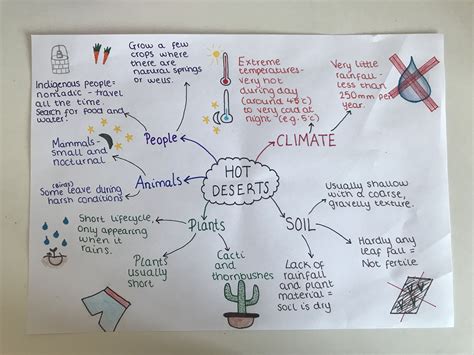 Grow a few
crops where
there are
natural springs
or wells.
Indigenous people=
nomadic - travel
all the time.
Search for food and
water.
People
Mammals-
small and
nocturnal
Animals
(Birds)
Some leave during
harsh conditions
Extreme
temperatures-
very hot
during day
(around 45°c)
to very cold at
night (e.g. 5°c)
Very little
rainfall -
less than
250mm per
year.
CLIMATE
HOT
DESERTS
Plants
Short lifecycle,
only appearing
when it
rains.
Plants
usually
short
Cacti
and
thornbushes
SOIL
Usually shallow
with a coarse,
gravelly texture.
Hardly any
leaf fall =
Not fertile
Lack of
rainfall
and plant
material =
soil is dry